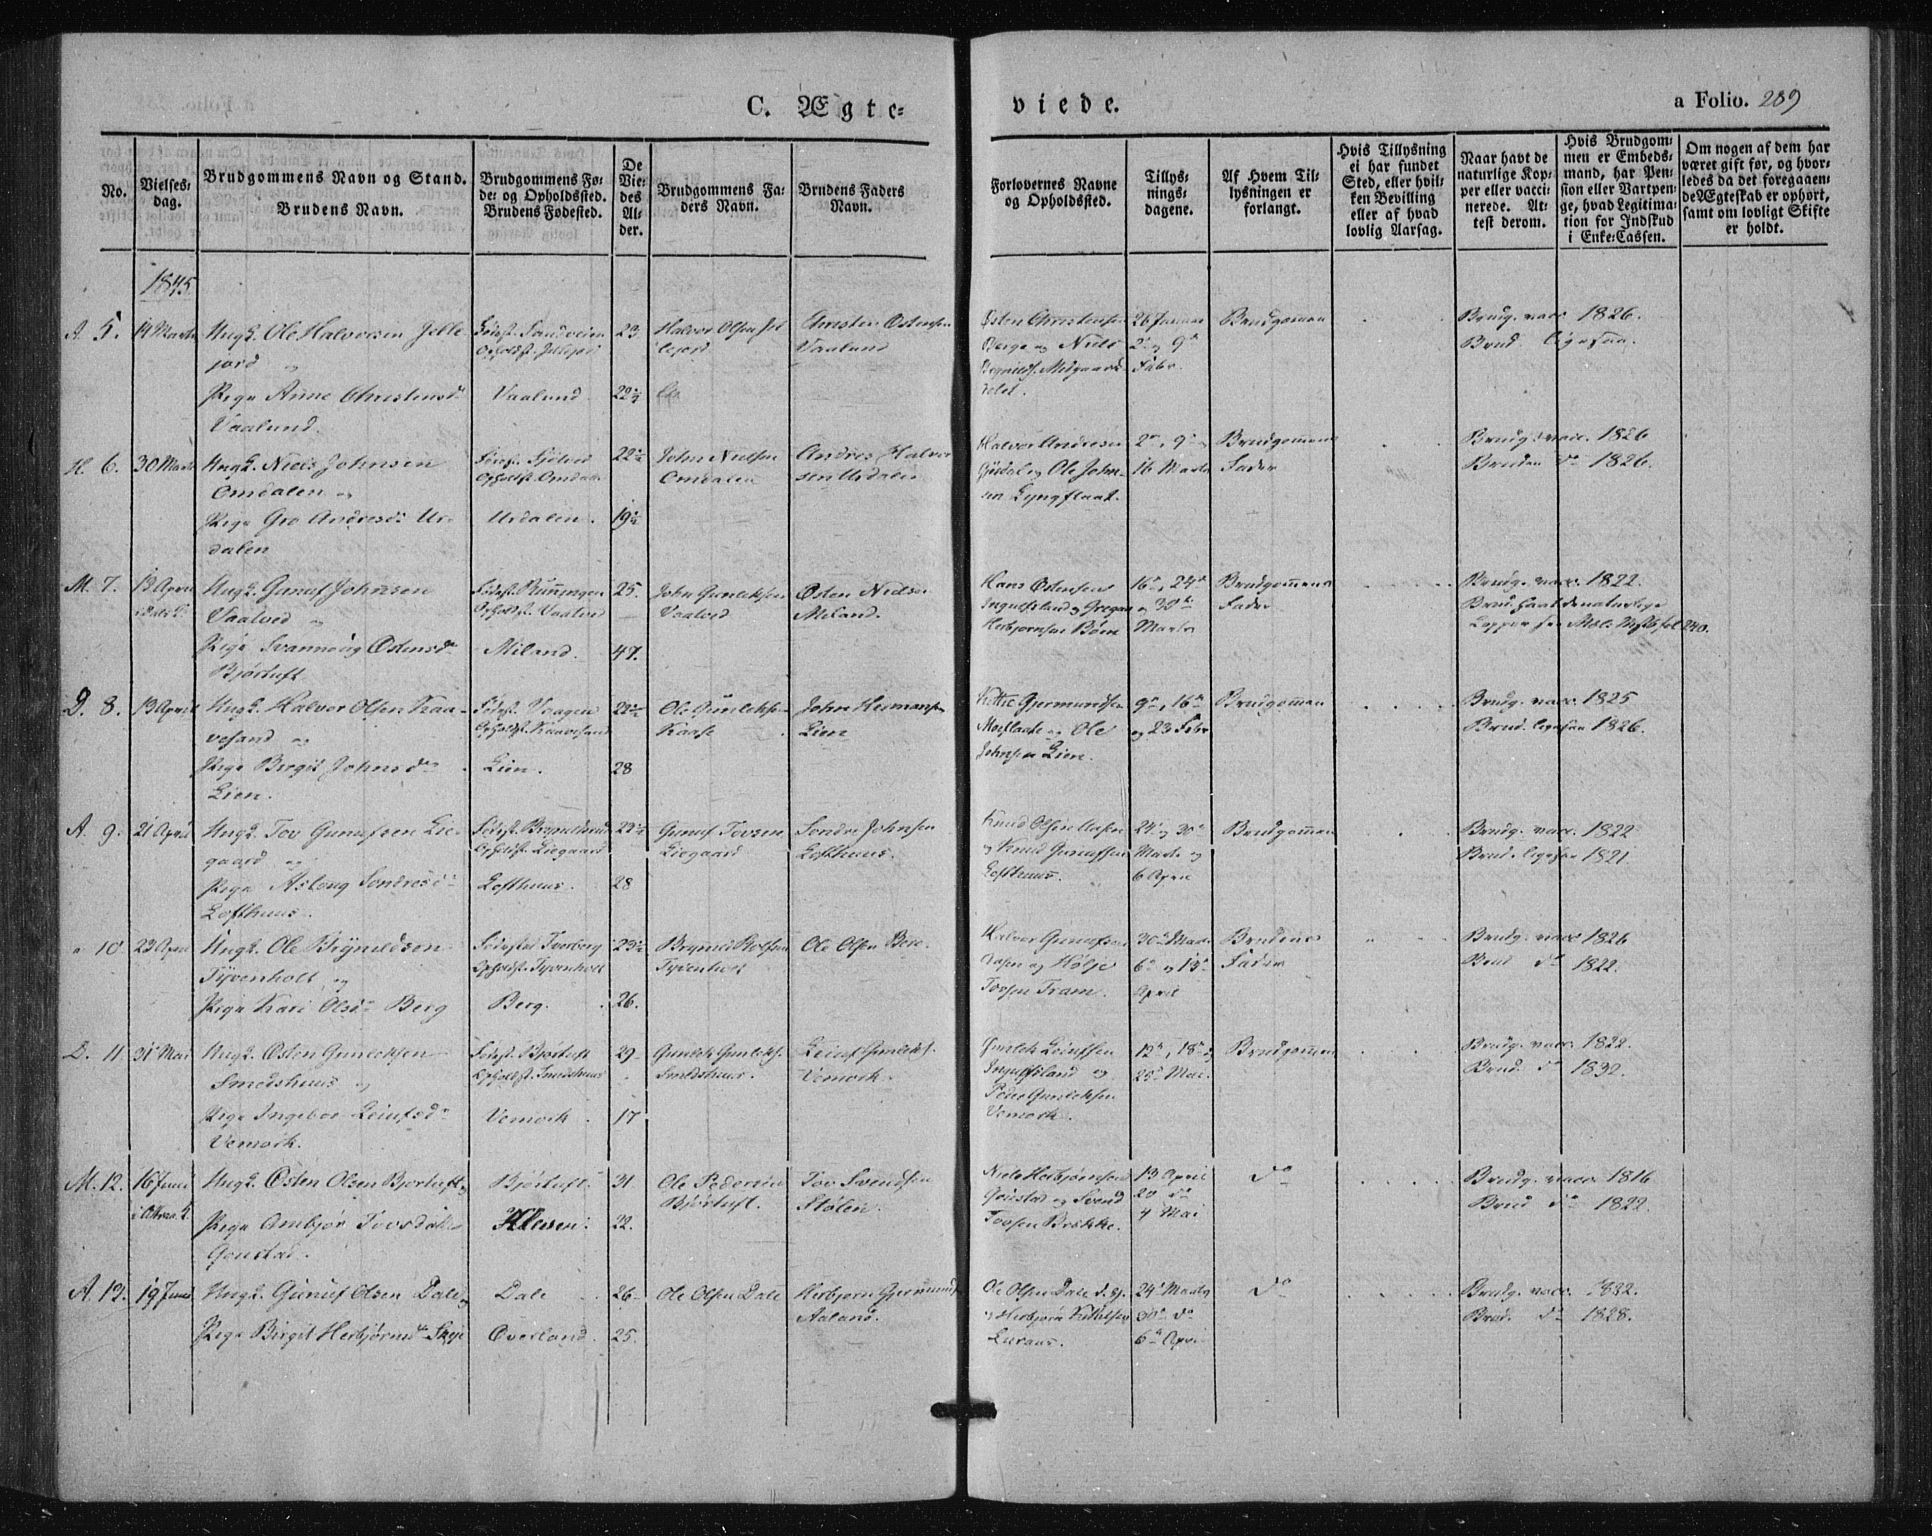 C. Ægte=
viede.
a Folio. 289
No.
Vielses-
dag.
Brudgommens Navn og Stand.
Brudens Navn.
Brudgommens Fø-
de- og Opholdssted.
Brudens Fødested.
De
Vie-
des
Al-
der.
Brudgommens Fa-
ders Navn.
Brudens Faders
Navn.
Forlovernes Navne
og Opholdssted.
Tillys-
nings-
dagene.
Af Hvem Til-
lysningen er
forlangt.
Hvis Tillysning
ei har fundet
Sted, eller hvil-
ken Bevilling
eller af hvad
lovlig Aarsag.
Naar havt de
naturlige Kop-
per eller vacci-
nerede. At-
test derom.
Hvis Brudgom-
men er Embeds-
mand, har Pen-
sion eller Vartpen-
ge, hvad Legitima-
tion for Indskud
i Enke-Cassen.
Om nogen af dem har
været gift før, og hvor-
ledes da det foregaaen-
de Ægteskab er ophørt,
samt om lovligt Skifte
er holdt.
1845
A. 5. 14 Marts Ungk. Ole Halvorsen Jelle-
jord og
Pige Anne Christensd.
Vaalund.
Fødest. Sandveien
Opholdst. Jellejord
Vaalund.
23
22
Halvor Olsen Jel-
lejord
Christen Østensen
Vaalund
Østen Christensen
Berge og Niels
26 Januar
2 og 9
Febr.
Brudgommen
Brudg. vacc. 1826.
Brud. ligesaa.
H. 6. 30 Marts Ungk. Niels Johnsen
Omdalen og
Pige Gro Andresd. Ur-
dalen
Opholdst. Omdalen
Urdalen.
22½
19½
John Nielsen
Omdalen
Andres Halvor-
sen Urdalen
Halvor Andresen
og Ole John-
sen Lyngflaat.
2, 9
16 Marts
Brudgommens
Fader
Brudg. vacc. 1826
Bruden do 1826.
M. 7. 13 April Ungk. Gunuf Johnsen
Vaalved og
Pige Svannaug Østensdr
Bjørtuft
Opholdst. Vaalved
Miland.
25.
47.
John Gunleksen
Vaalved
Østen Nielsen
Miland.
Hans Østensen
Ingulfsland og Gregar
Herbjørnsen Bøen
16, 24
og 30
Marts
Brudgommens
Fader
Brudg. vacc. 1822.
Brud. havt de naturlige
Kopper
D. 8. 13 April Ungk. Halvor Olsen Kaa-
vesand og
Pige Birgit Johnsdr
Lien.
Fødest. Vaagen
Opholdst. Kaavesand
Lien.
22½
28
Ole Gunleksen
Kaase
John Hermansen
Lien
Kittil Germundsen
og Ole
Johnsen Lien.
9, 16
og 23 Febr
Brudgommen
Brudg. vacc. 1825
Brud. ligesaa 1826.
A. 9. 21 April Ungk. Tov Gunufsen Lie-
gaard og
Pige Aslaug Sondresd.
Lofthuus.
Opholdst. Liegaard
Lofthuus.
28
Gunuf Tovsen
Liegaard
Sondre Johnsen
Lofthuus.
Knud Olsen
og Knud Gunufsen
Lofthuus.
24 og 30
Marts og
6 April
Brudgommen
Brudg. vacc. 1822
Brud. ligesaa 1821.
" 10 23 April Ungk. Ole Brynildsen
Tyvenholt og
Pige Kari Olsd. Berg
Fødested Tveraberg
Opholdst. Tyvenholt
Berg.
23½
26.
Tyvenholt
Ole Olsen Berg.
Halvor Gunufsen
og Hølje
Tovsen Fram.
30 Marts
6 og 13
April
Brudens
Fader
Brudg. vacc. 1826
Brud do 1822.
D. 11 31 Mai Ungk. Østen Gunleksen
Smedshuus og
Pige Ingebor Leinfsdr
Vemork.
Fødest. Bjørtuft
Opholdst. Smedshuus
Vemork
29
17
Gunlek Gunleks.
Smedshuus.
Leinuf Gunleks.
Vemork.
Gunlek Leinfsen
Ingulfsland og
Peder Gunleksen
Vemork.
12, 18 og
25 Mai.
Brudgommen
Brudg. vacc. 1822.
Brud. do 1832.
M. 12. 16 Juni Ungk. Østen Olsen Bjørtuft og
Pige Ambjør Tovsdr
Goustad.
Bjørtuft.
31.
22.
Ole Pedersen
Bjørtuft.
Tov Svendsen
Stølen.
Niels Herbjørnsen
Goustad og Svend
Tovsen Brekke.
13 April
20 do
4 Mai
do
Brudg. vacc. 1816
Brud do 1822.
A. 12. 19 Juni Ungk. Gunuf Olsen Dale og
Pige Birgit Herbjørnsd. Skeje
Dale
Øverland.
26
25.
Ole Olsen Dale
Herbjørn Germunds.
Aaland.
Ole Olsen Dale d. y.
og Herbjørn Kittilsen
Luraas.
24 Marts
30 do
6 April
do
Brudg. vacc. 1822.
Brud. do 1828.